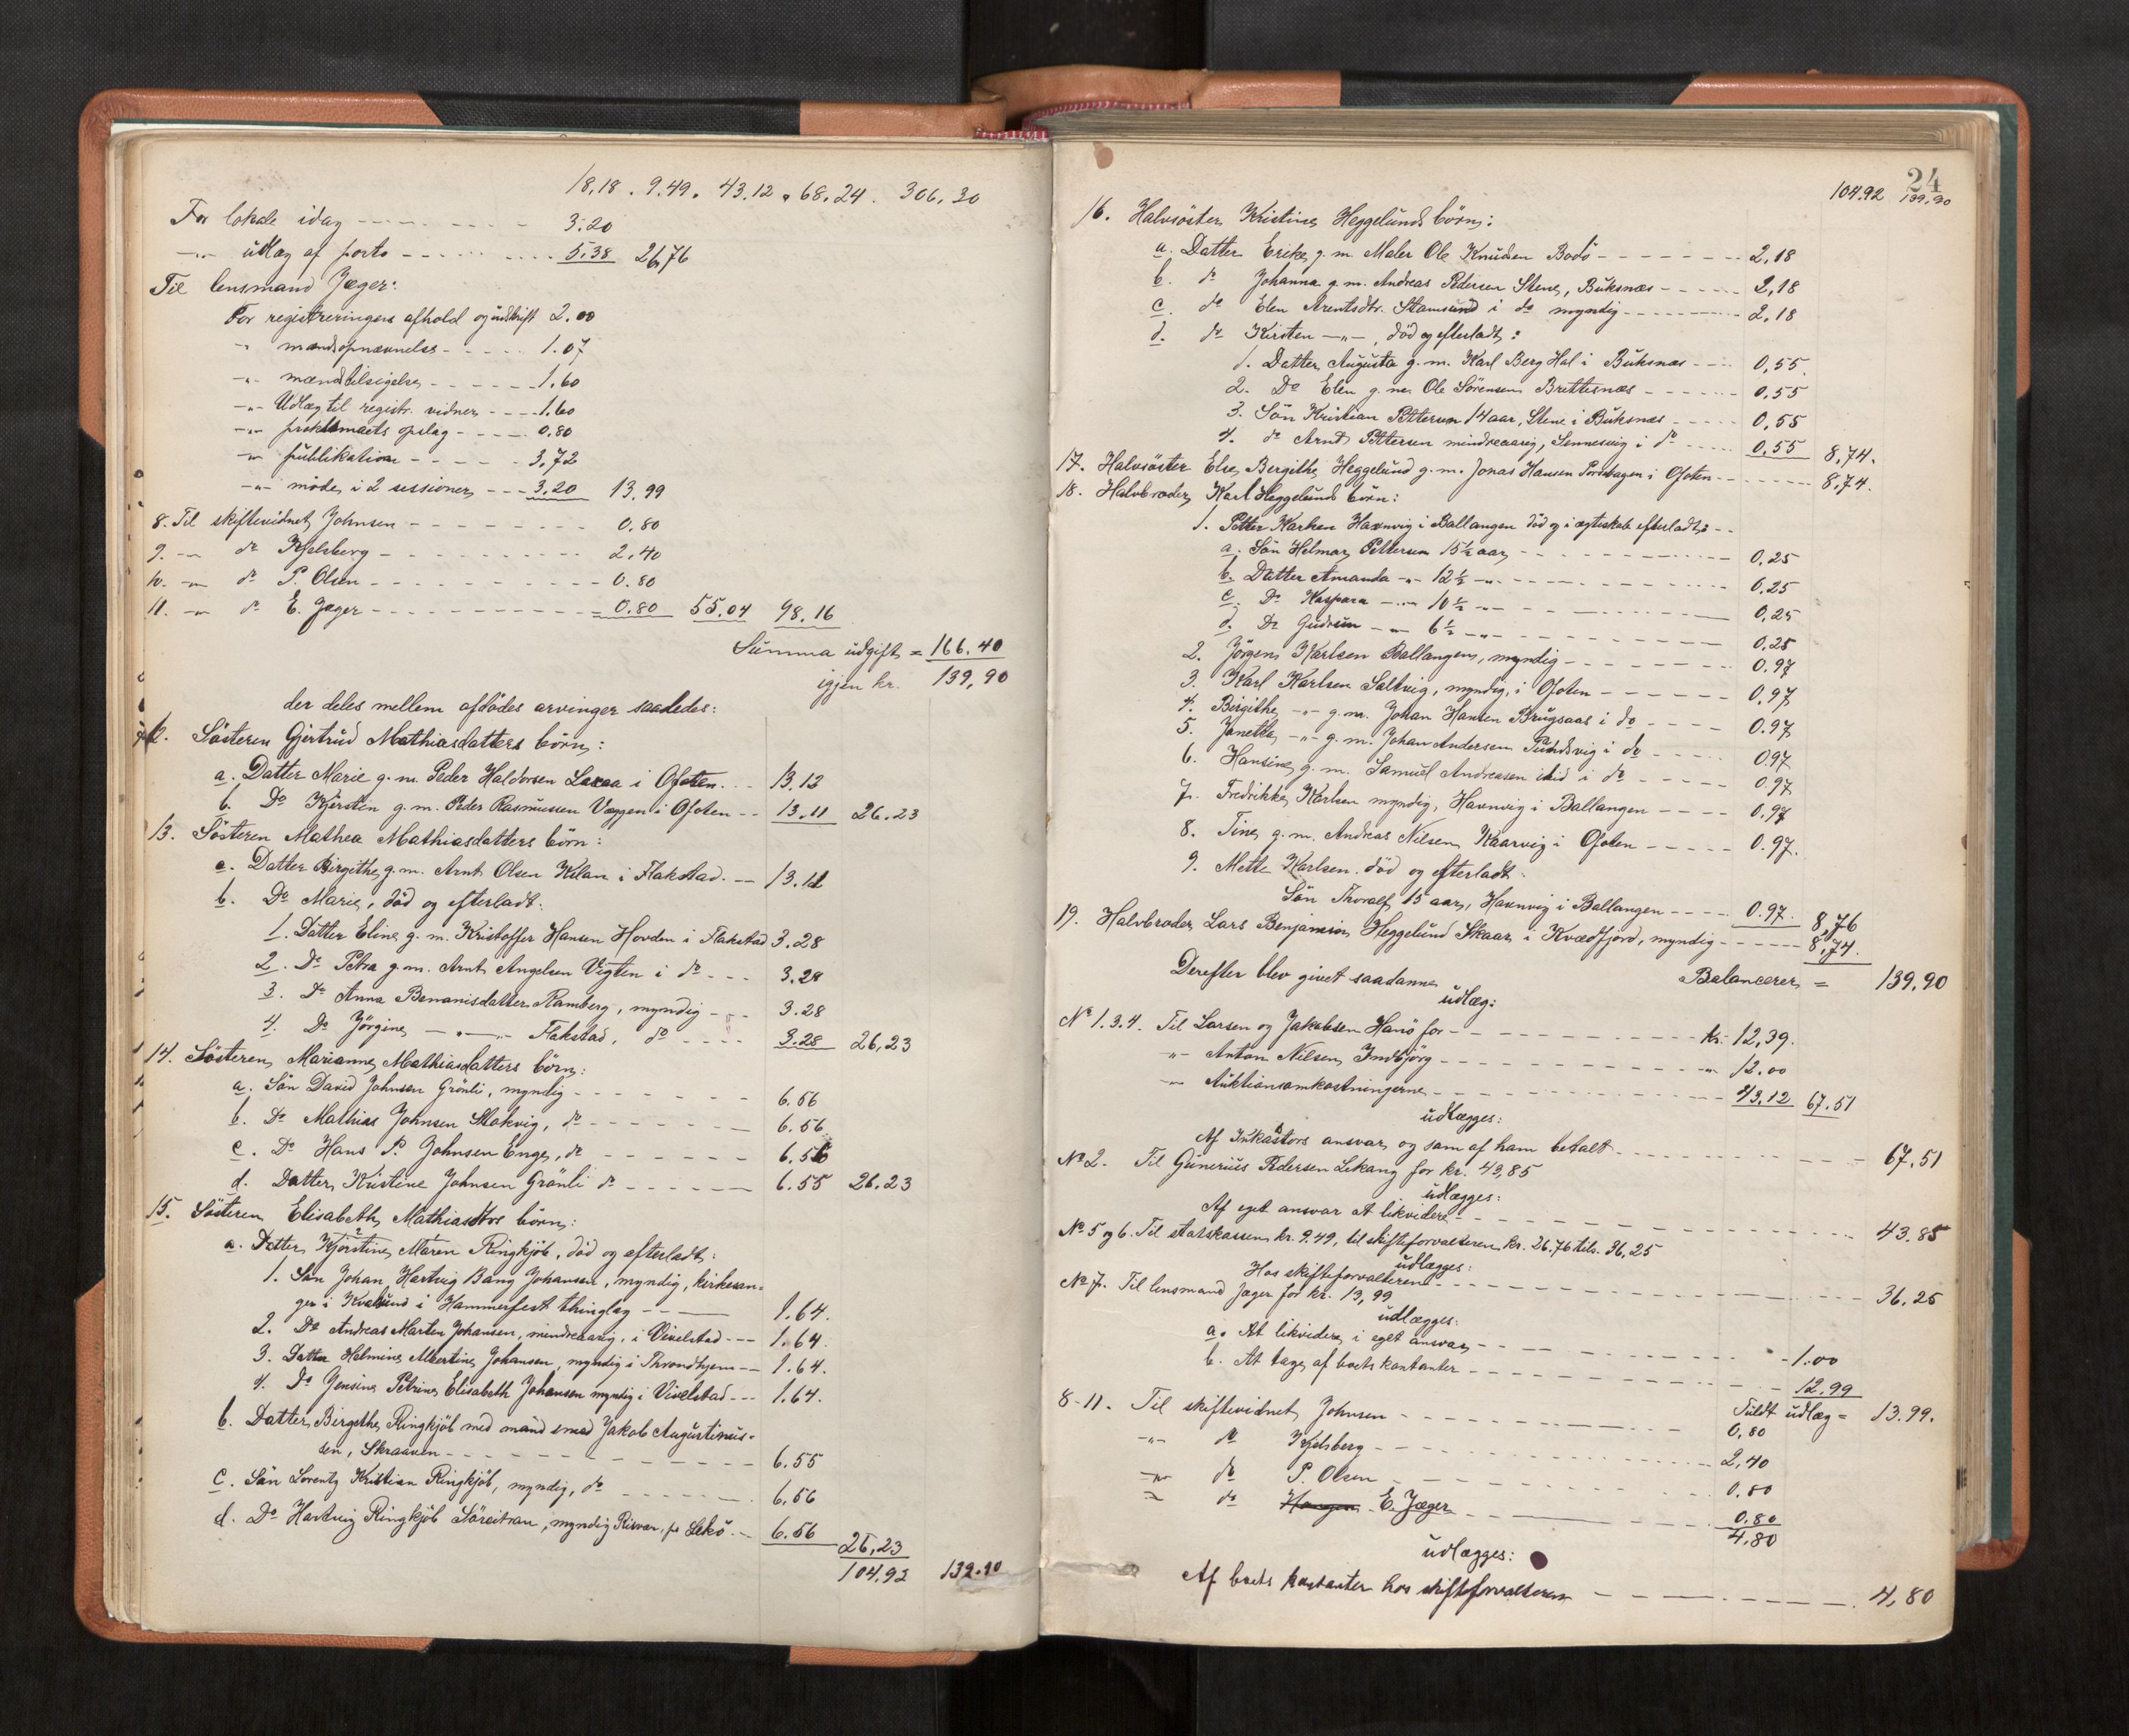 18,18 . 9.49. 43.12 . 68.24. 306,30
For lokale idag - - - - 3.20
-"- udlæg af porto - - - - 5.38 26,76
Til lensmand Jæger:
For registreringens afhold og udskrift 2.00
-"- mændsopnævnelse - - - - 1.07
-"- mændstilsigelse - - - - 1.60
-"- Udlæg til registr. vidner - - - 1.60
-"- proklamaets opslag - - - - 0.80
-"- publikation - - - - 3,72
-"- møde i 2 sessioner - - - 3.20 13,99
8. Til skiftevidnet Johnsen - - - - 0.80
9. -"- do Kjelsberg - - - - 2.40
10. -"- do P. Olsen - - - - 0.80
11. -"- do E. Jæger - - - - 0.80 55.04 98.16
Summa udgift = 166.40
igjen kr. 139,90
der deles mellem afdødes arvinger saaledes:
12. Søsteren Gjertrud Mathiasdatters børn:
a. Datter Marie g. m. Peder Haldorsen Laxaa i Ofoten - - 13.12
b. Do Kjersten g. m. Peder Rasmussen Væggen i Ofoten - - 13.11 26.23
13. Søsteren Mathea Mathiasdatters børn:
a. Datter Birgithe g. m. Arnt Olsen Kilan i Flakstad - - 13.11
b. Do Marie, død og efterladt:
1. Datter Eline g. m. Kristoffer Hansen Hovden i Flakstad 3.28
2. Do Petra g. m. Arnt Angelsen Vigten i do - - - 3.28
3. Do Anna Benonisdatter Ramberg, myndig - - - 3.28
4. Do Jørgine -"- Flakstad, do - - - - 3.28 26,23
14. Søsteren Marianne Mathiasdatters børn:
a. Søn David Johnsen Grønli, myndig - - - - 6.56
b. Do Mathias Johnsen Stokvig, do - - - - 6.56
c. Do Hans P. Johnsen Enge, do - - - - 6.56
d. Datter Kristine Johnsen Grønli do - - - - 6.55 26.23
15. Søsteren Elisabeth Mathiasdtrs børn:
a. Datter Kjørstine Maren Ringkjøb, død og efterladt:
1. Søn Johan Hartvig Bang Johansen, myndig, kirkesan-
ger i Kvalsund i Hammerfest thinglag - - - 1.64.
2. Do Andreas Marten Johansen, mindreaarig, i Vivelstad - - - 1.64.
3. Datter Helmine Albertine Johansen, myndig i Throndhjem - - 1.64.
4. Do Jensine Petrine Elisabeth Johansen myndig i Vivelstad - - - 1.64.
b. Datter Birgithe Ringkjøb med mand smed Jakob Augustinus-
sen, Skraaven - - - - 6.55
c. Søn Lorentz Kristian Ringkjøb, myndig, do - - - - 6,56
d. Do Hartvig Ringkjøb, myndig Risvær, pr Lekø. - 6.56 26,23
104.92 139.90
24
104.92 139,90
16. Halvsøster Kristine Heggelunds børn:
a. Datter Erike g. m. Maler Ole Knudsen Bodø - - - - 2,18
b. do Johanna g. m. Andreas Pedersen Stene, Buksnæs - - - - 2,18
c. do Elen Arentsdtr. Stamsund i do myndig - - - - 2,18
d. do Kirsten -"-, død og efterladt:
1. Datter Augusta g. m. Karl Berg Hol i Buksnæs - - - 0,55.
2. Do Elen g. m. Ole Sørensen Brettesnæs - - - - 0,55
3. Søn Kristian Pettersen 14 aar, Stene i Buksnæs - - - - 0,55
4. do Arnt Pettersen mindreaarig, Sennesvig i do - - - - 0,55 8,74.
17. Halvsøster Else Bergithe Heggelund g. m. Jonas Hansen i Ofoten - - - - 8,74.
18. Halvbroder Karl Heggelunds børn:
1. Petter Karlsen Haxnvig i Ballangen død og i ægteskab efterladt: - -
a. Søn Helmar Pettersen 15½ aar - - - - 0,25
b. Datter Amanda -"- 12½ -"- - - - - 0.25
c. Do Kaspara -"- 10½ -"- - - - - 0,25
d. Do Gudrun -"- 6½ -"- - - - - 0.25
2. Jørgen Karlsen Ballangen, myndig - - - - 0.97
3. Karl Karlsen Saltvig, myndig, i Ofoten - - - - 0.97
4. Birgithe -"- g. m. Johan Hansen Brugsaas i do - - - - 0.97
5. Janette -"- g. m. Johan Andersen Sandsvig i do - - - - 0.97
6. Hansine g. m. Samuel Andreasen ibid i do - - - - 0.97
7. Fredrikke Karlsen myndig, Haxnvig i Ballangen - - - - 0.97
8. Tine g. m. Andreas Nilsen Kaarvig i Ofoten - - - - 0.97.
9. Mette Karlsen. død og efterladt.
Søn Thoralf 15 aar, Haxnvig i Ballangen - - - - 0.97. 8,76
19. Halvbroder Lars Benjamin Heggelund Skaar i Kvædfjord, myndig - - - - 8,74.
Balancerer = 139.90
Derefter blev givet saadanne
udlæg:
No 1.3.4. Til Larsen og Jakobsen Hanø for - - - - kr. 12,39.
-"- Anton Nilsen Indbjørg - - - - " 12.00
-"- Auktionsomkostningerne - - - - 43,12 67.51
udlægges:
Af Inkastors ansvar og som af ham betalt - - - - 67.51
No 2. Til Gunerius Pedersen Lekang for kr. 43,85
udlægges:
Af eget ansvar at likvidere - - - - 43.85
No 5 og 6. Til statskassen kr. 9.49, til skifteforvalteren kr. 26.76 tils. 36,25
udlægges:
Hos skifteforvalteren - - - - 36.25
No 7. Til lensmand Jæger for kr. 13,99
udlægges:
a. At likvidere i eget ansvar - - - - 1.00
b. At tage af boets kontanter - - - - 12.99
Fuldt udlæg = 13.99.
8-11. Til skiftevidnet Johnsen - - - - 0,80
-"- do Kjelsberg - - - - 2,40
-"- do P. Olsen - - - - 0.80
-"- do E. Jæger - - - - 0.80
4,80
udlægges:
Af boets kontanter hos skifteforvalteren - - - - 4,80